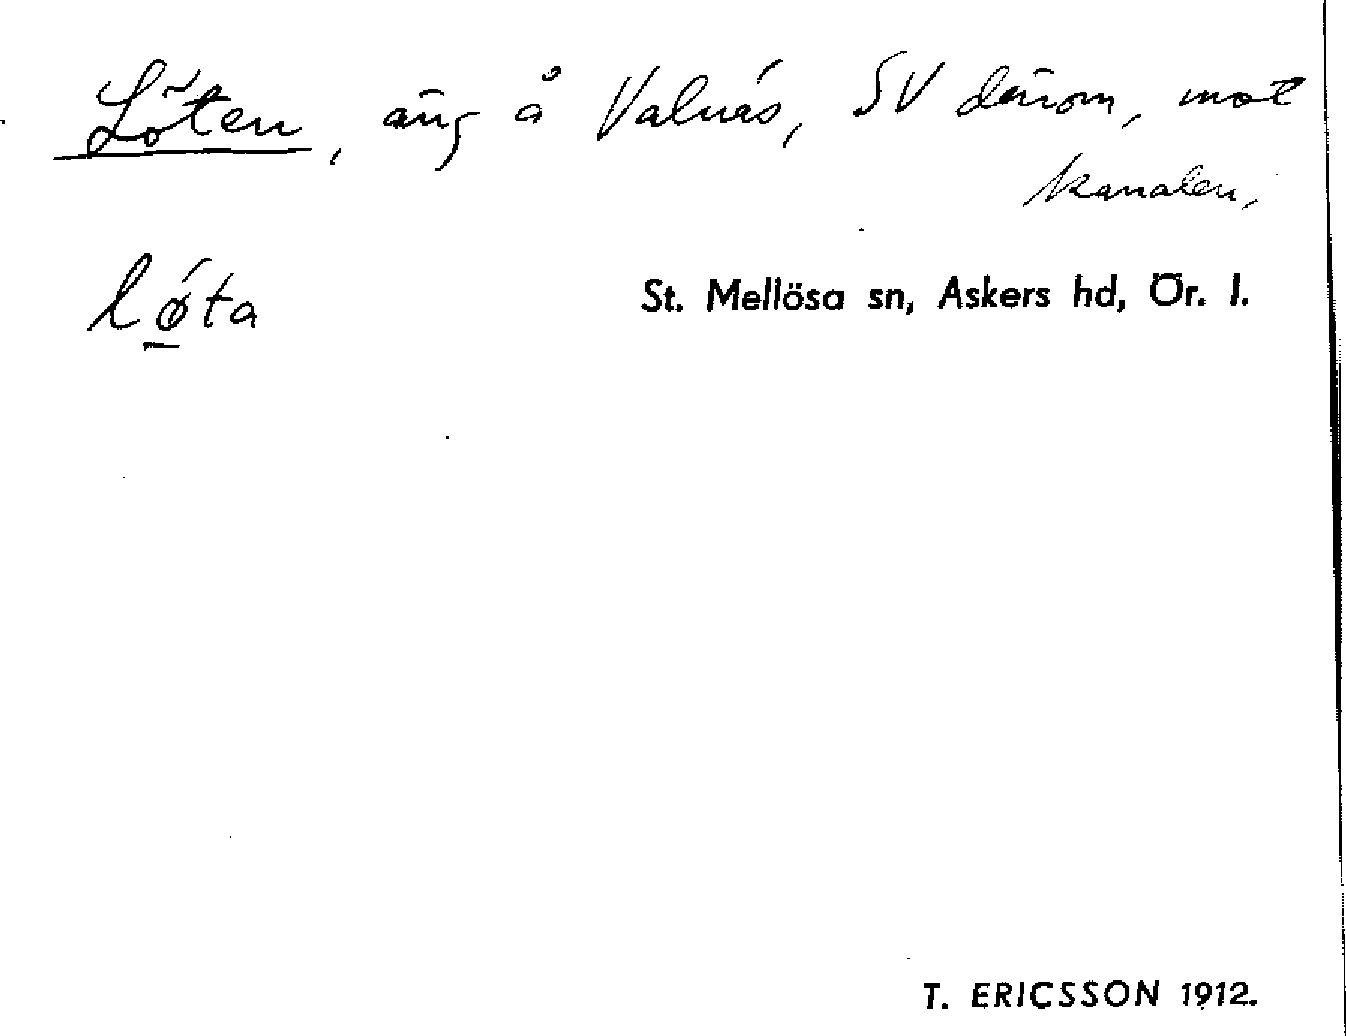 Löten, äng å Valnäs, SV därom, mot
kanalen,
lǿta
St. Mellösa sn, Askers hd, Ör. l.
T. ERICSSON 1912.